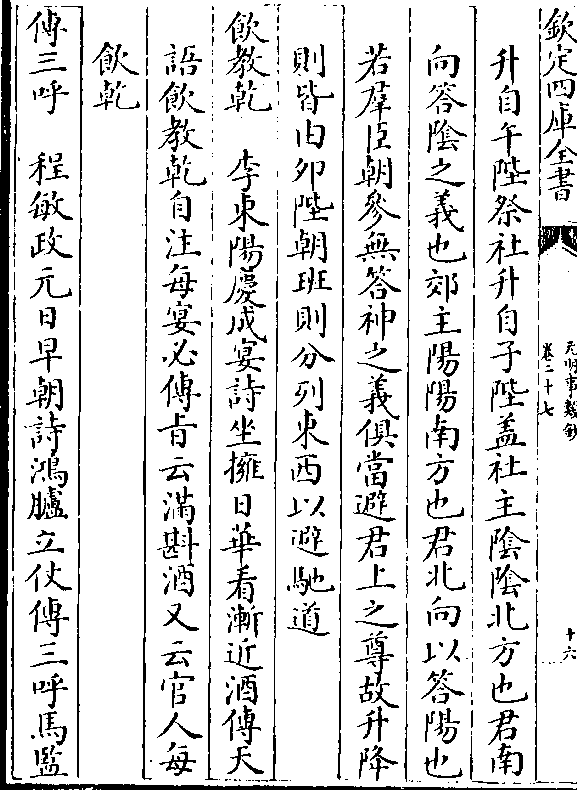 欽定四庫全書
元明事類鈔
卷二十七
十六
升自午陛祭社升自子陛盖社主陰陰北方也君南
向答陰之義也郊主陽陽南方也君北向以答陽也
若羣臣朝參無答神之義俱當避君上之尊故升降
則皆由夘陛朝班則分列東西以避馳道
飲教乾　李東陽慶成宴詩坐擁日華看漸近酒傳天
語飲教乾自注每宴必傳㫖云滿斟酒又云官人每
飲乾
傳三呼　程敏政元日早朝詩鴻臚立仗傳三呼馬監